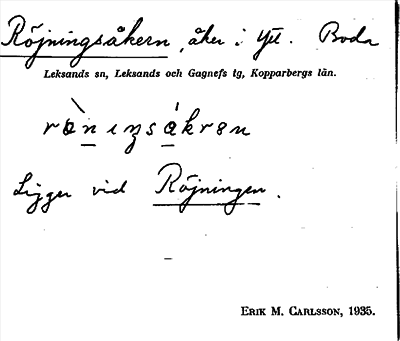 Röjningsåkern, åker i Ytt. Boda
Leksands sn, Leksands och Gagnefs tg, Kopparbergs län.
Ligger vid Röjningen.
ERIK M. CARLSSON, 1935.